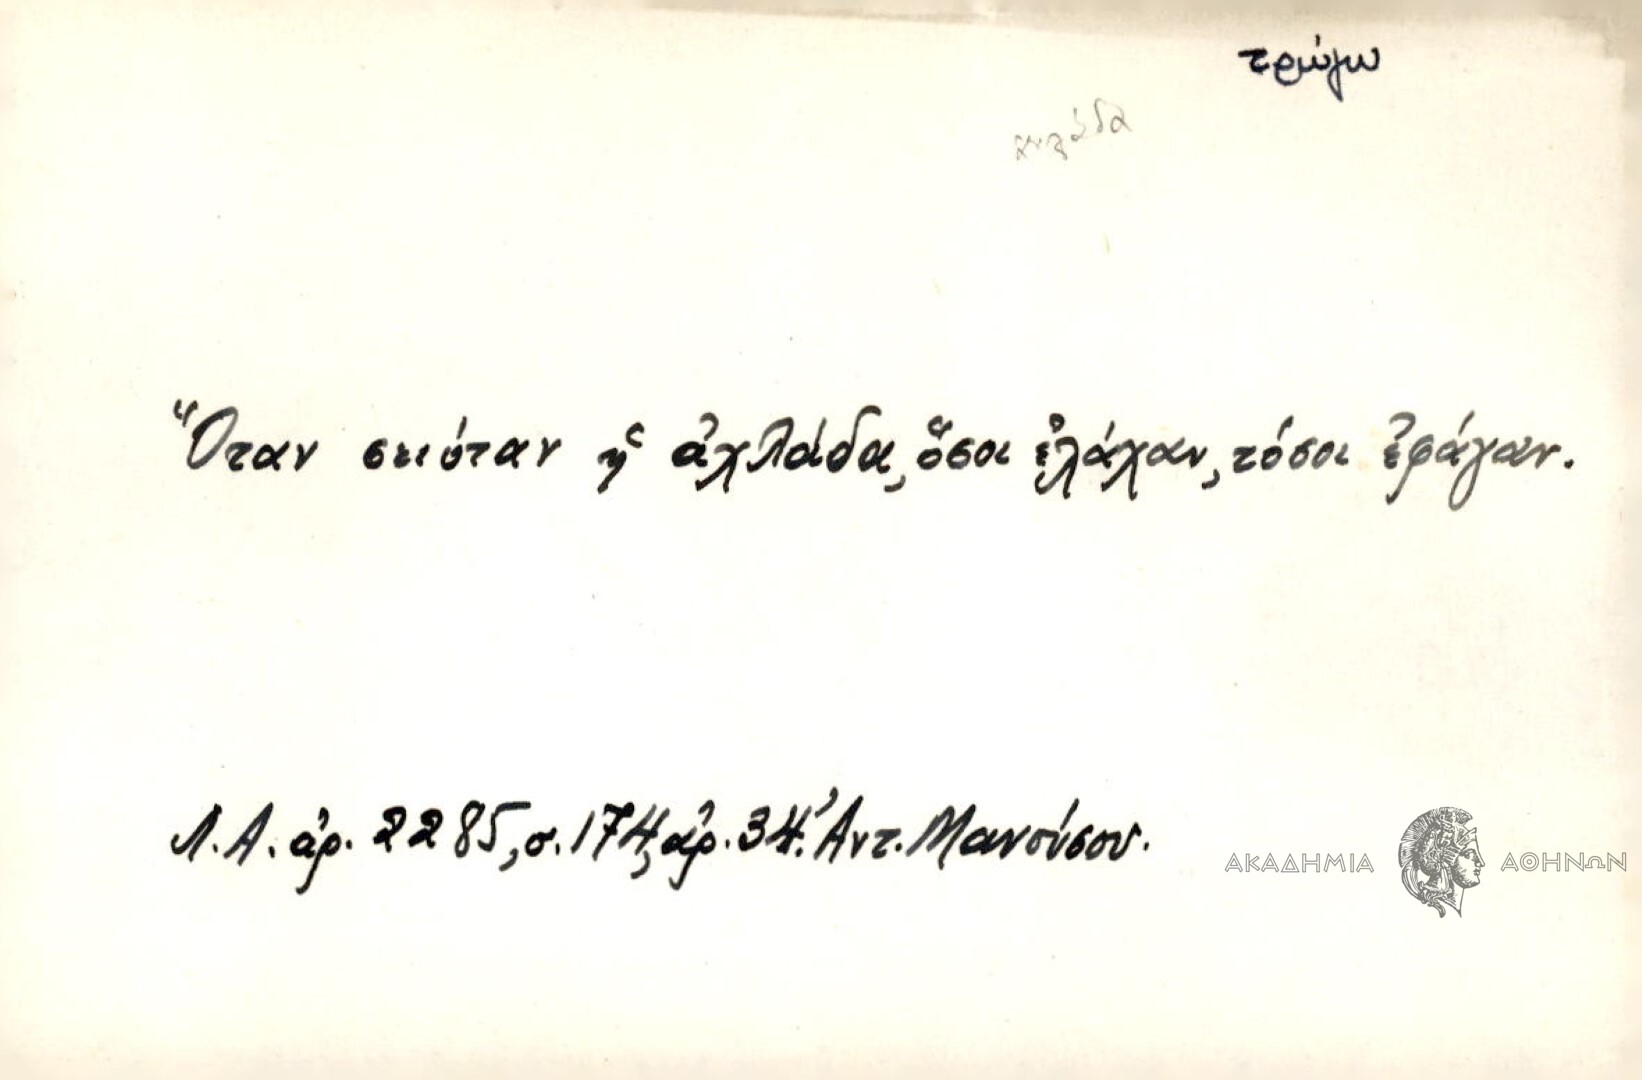 τρώγω
ἀχλάδα
Ὅταν σειόταν ἡ ἀχλάδα, ὅσοι ἐλάχαν, τόσοι ἐφάγαν.
Λ.Α. ἀρ. 2285, σ. 174, ἀρ. 34. Ἀντ. Μανούσου.
ΑΚΑΔΗΜΙΑ ΑΘΗΝΩΝ